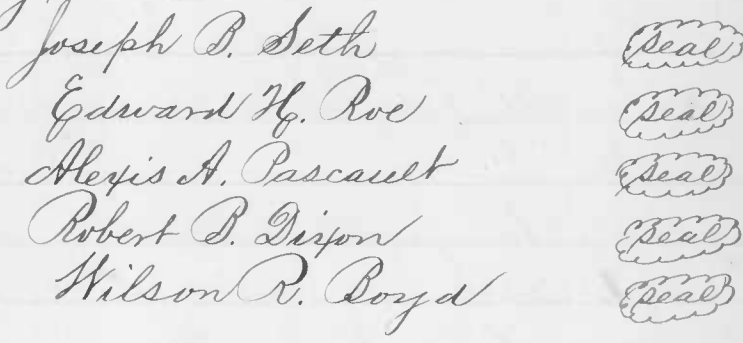 Joseph B. Seth (Seal)
Edward H. Roe (Seal)
Alexis A. Pascault (Seal)
Robert B. Dixon (Seal)
Wilson R. Boyd (Seal)